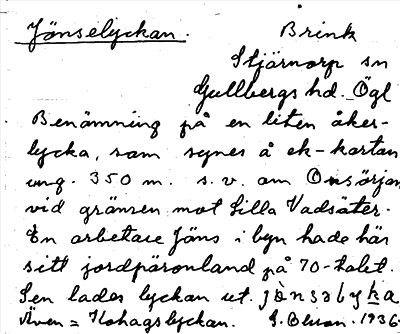 Jönselyckan.
Brink
Stjärnorp sn
Gullbergs hd. Ögl
Benämning på en liten åker-
lycka, som synes å ek-kartan
ung. 350 m. s.v. om Onsörjan
vid gränsen mot Lilla Vadsäter.
En arbetare Jöns i byn hade här
sitt jordpäronland på 70-talet.
Sen lades lyckan ut.
Även = Kohagslyckan. G. Olson. 1936